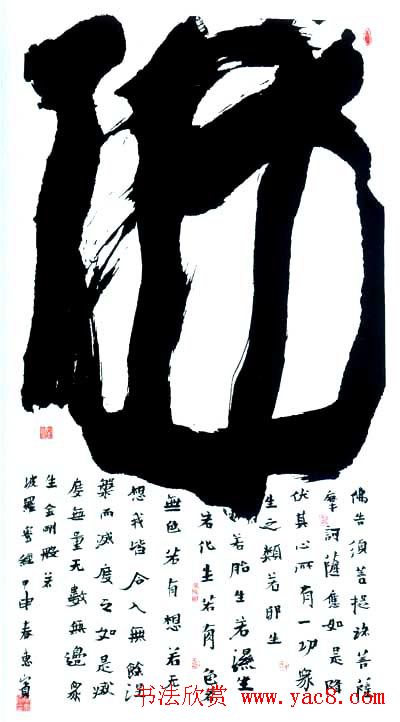 佛告須菩提諸菩薩
摩訶薩應如是降
伏其心所有一切眾
生之類若卵生
若胎生若濕生
若化生若有色若
無色若有想若无
想我皆令入無餘涅
槃而滅度之如是滅
度無量无數無邊眾
生金剛般若
波羅蜜經甲申春
书法欣赏 www.yac8.com